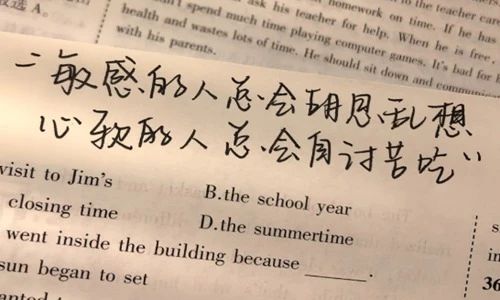 选 A。
homework on time. If he has
to the teacher can
ask his teacher for help. When he is free,
spend much time playing computer games. It's bad for
health and wastes lots of time. He should sit down and
with his parents.
“敏感的人总会胡思乱想
心软的人总会自讨苦吃”
visit to Jim's B.the school year
closing time D.the summertime
went inside the building because ______.
sun began to set
36